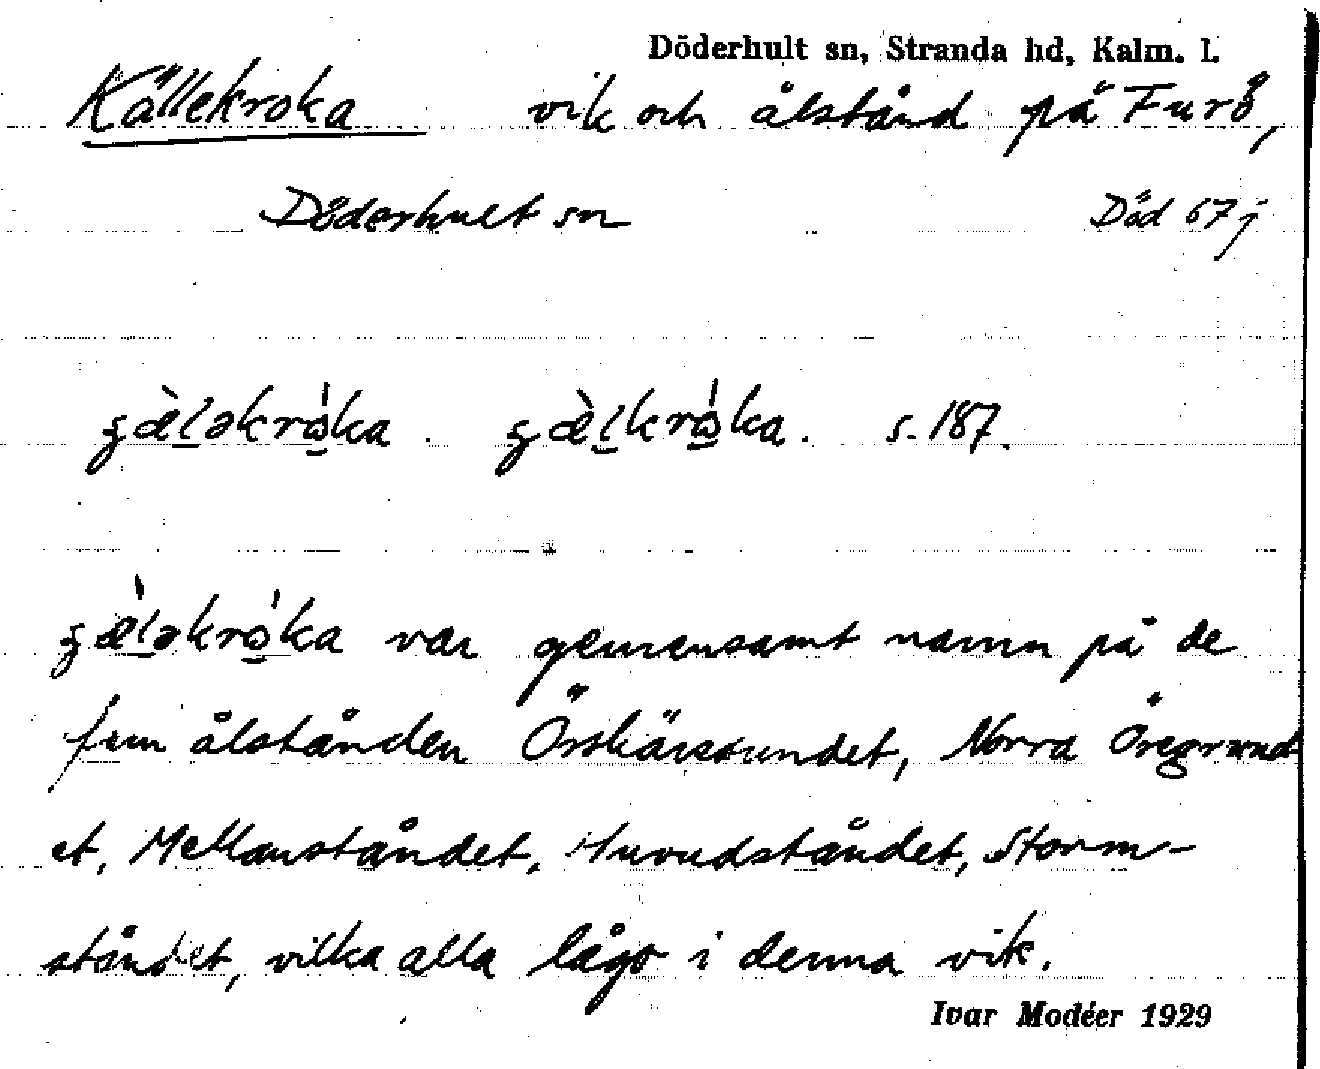 Döderhult sn, Stranda hd, Kalm. l.
Källekroka vik och ålstånd på Furö,
Döderhult sn Död 67j
s. 187.
var gemensamt namn på de
fem ålstånden Örskärssundet, Norra Öregrund
et, Mellanståndet, Huvudståndet, Storm-
ståndet, vilka alla lågo i denna vik.
Ivar Modéer 1929